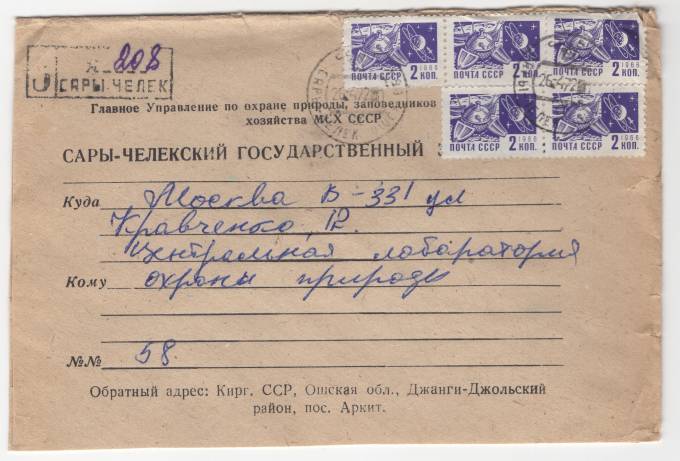 З № 208
САРЫ-ЧЕЛЕК
ПОЧТА СССР 1966 2 КОП.
ПОЧТА СССР 1966 2 КОП.
ПОЧТА СССР 1966 2 КОП.
ПОЧТА СССР 1966 2 КОП.
ПОЧТА СССР 1966 2 КОП.
Главное Управление по охране природы, заповедников
хозяйства МСХ СССР
САРЫ-ЧЕЛЕКСКИЙ ГОСУДАРСТВЕННЫЙ
Куда Москва В-331 ул
Кравченко, 12.
Центральная лаборатория
Кому охраны природы
№№ 58.
Обратный адрес: Кирг. ССР, Ошская обл., Джанги-Джольский
район, пос. Аркит.